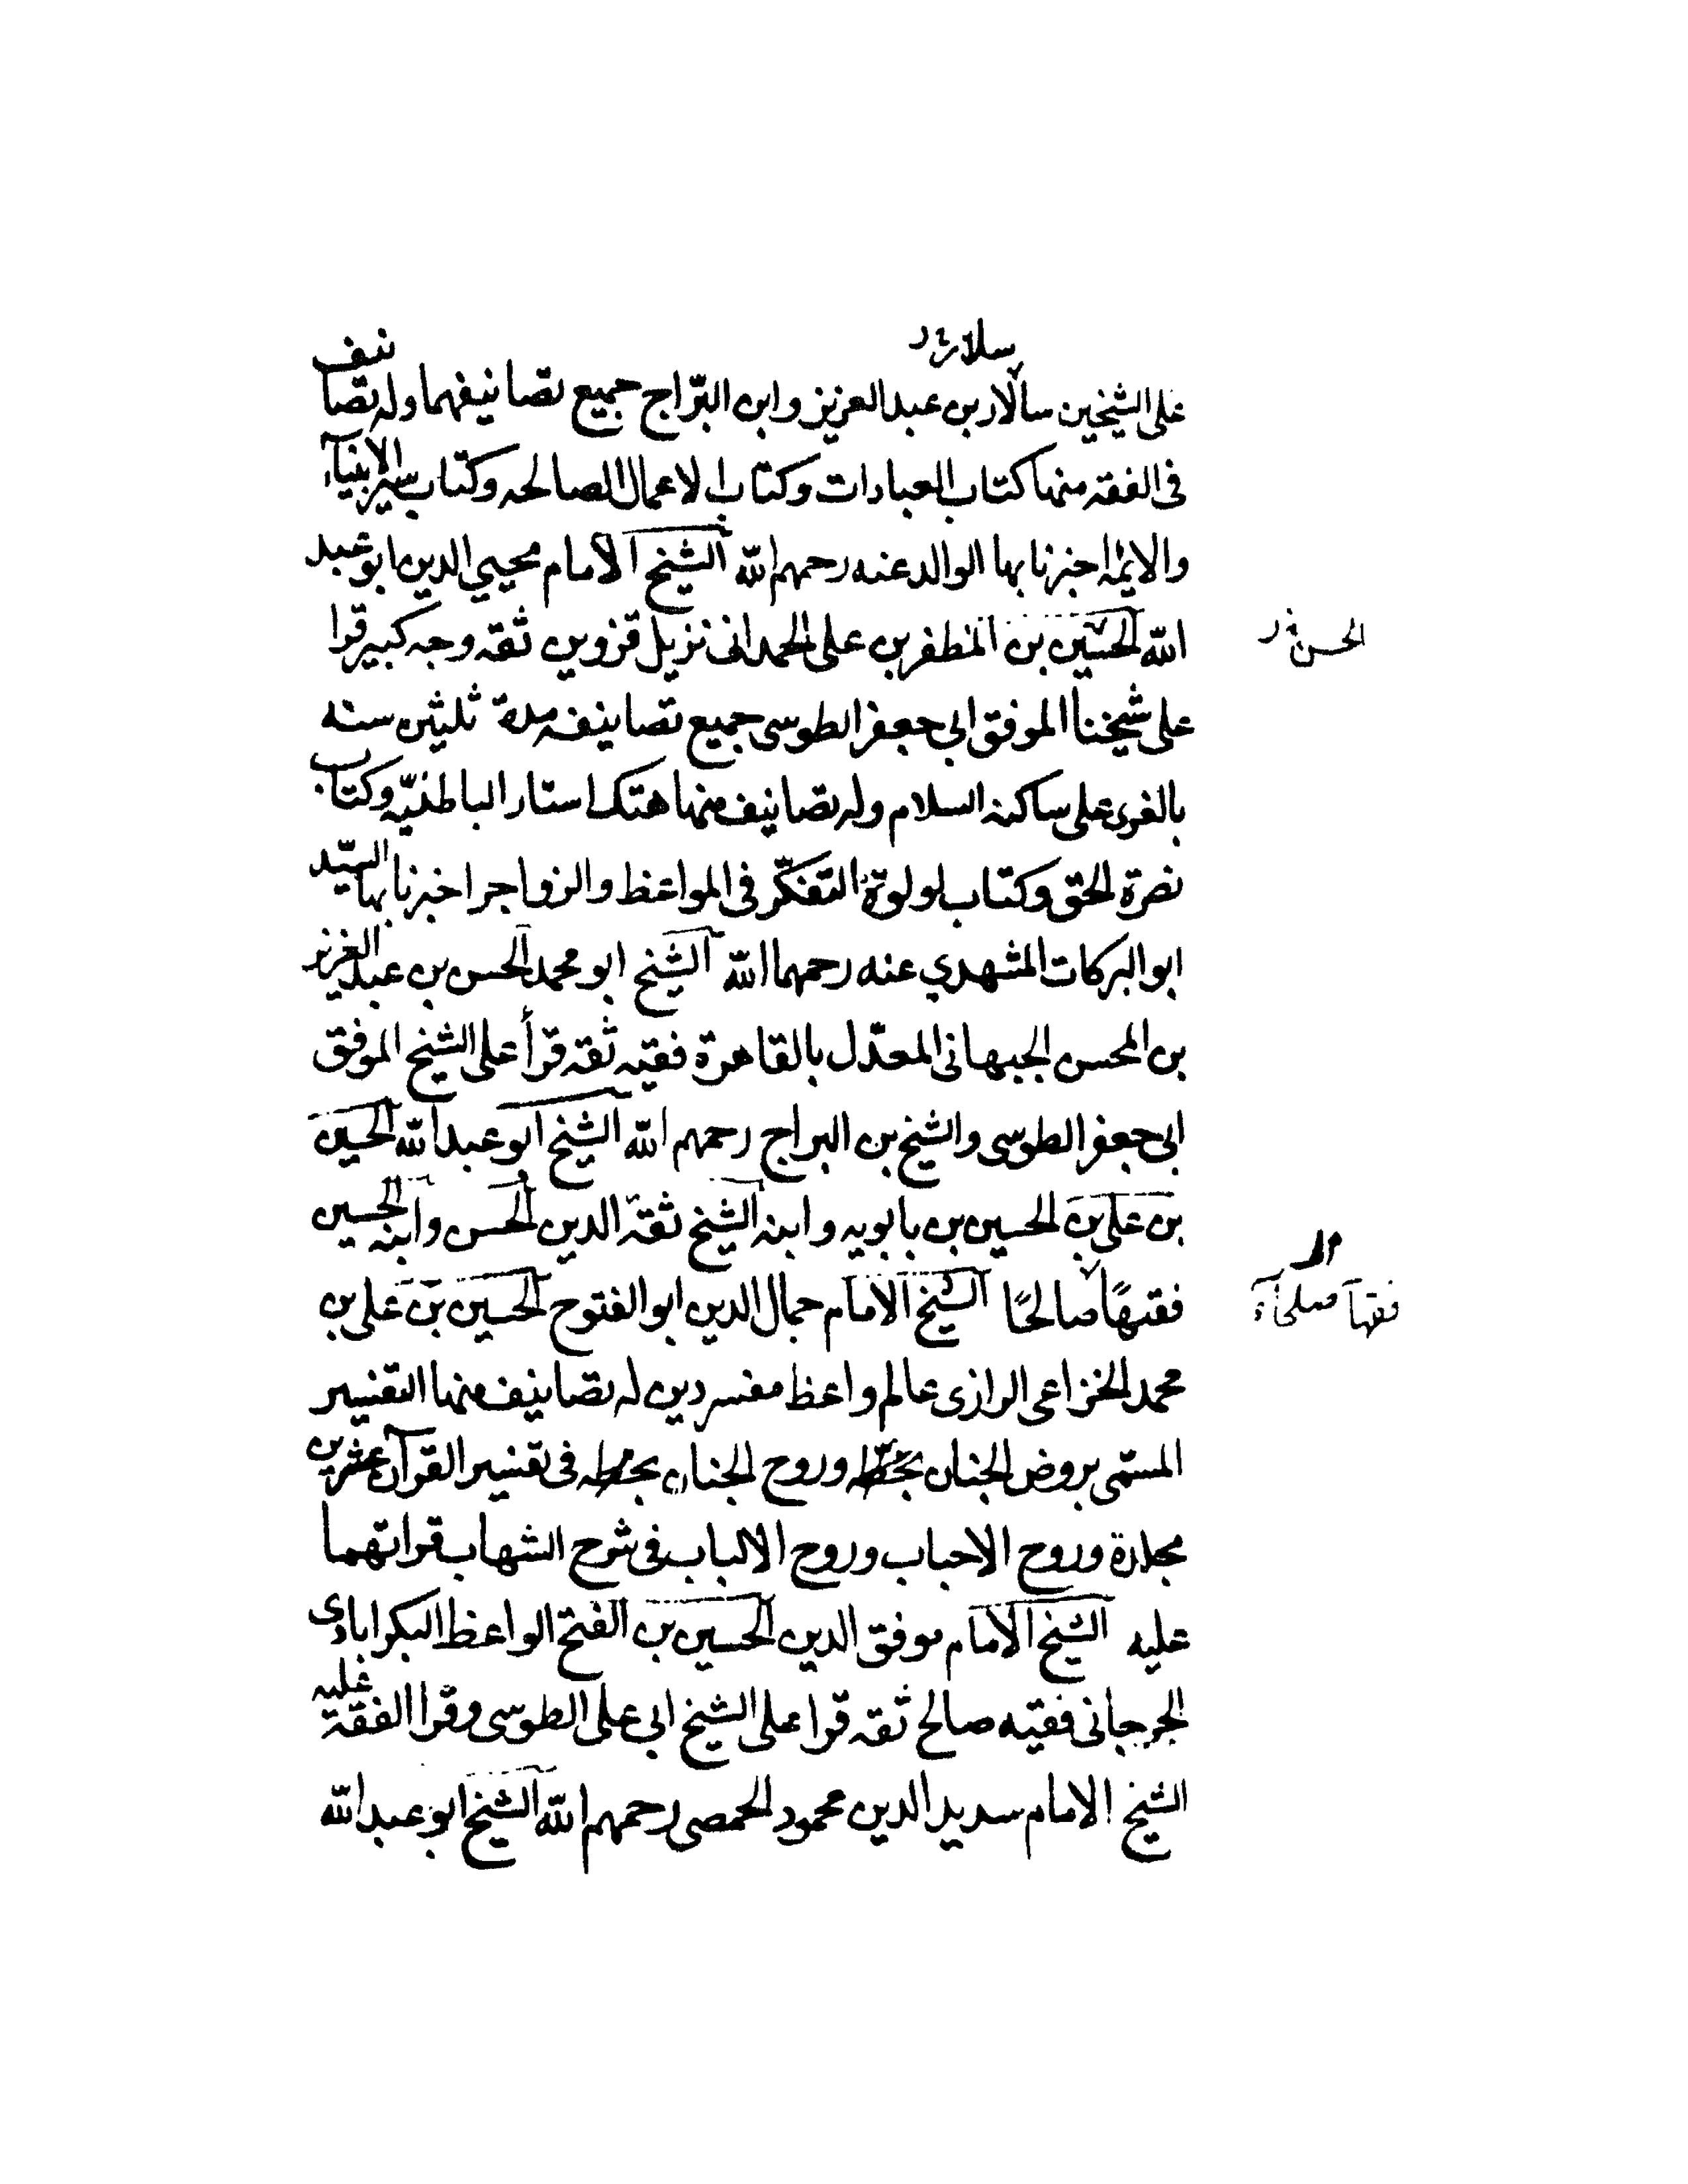 سلار
على الشيخين سالار بن عبد العزيز وابن البرّاج جميع تصانيفهما وله تصانيف
فى الفقه منها كتاب العبادات وكتاب الاعمال الصالحه وكتاب سير الانبيآء
والائمه اخبرنا بها الوالد عنه رحمهم الله الشيخ الامام محيي الدين ابو عبد
الله الحسين بن المظفر بن على الحمدانى نزيل قزوين ثقه وجه كبير قرا
الحسن
على شيخنا الموفق ابي جعفر الطوسى جميع تصانيفه مدة ثلثين سنه
بالغرى على ساكنه السلام وله تصانيف منها هتك استار الباطنيّه وكتاب
نصرة الحق وكتاب لولوة التفكّر فى المواعظ والزواجر اخبرنا بها السيّد
ابو البركات المشهدي عنه رحمهما الله الشيخ ابو محمد الحسن بن عبد العزيز
بن المحسن الجبهانى المعدّل بالقاهرة فقيه ثقه قرأ على الشيخ الموفق
ابى جعفر الطوسى والشيخ بن البراج رحمهم الله الشيخ ابو عبد الله الحسين
بن على بن الحسين بن بابويه وابنه الشيخ ثقة الدين الحسن وابنه الحسين
فقيهًا صالحًا الشيخ الامام جمال الدين ابو الفتوح الحسين بن على بن
فقهآ صلحآء
محمد الخزاعى الرازى عالم واعظ مفسر دين له تصانيف منها التفسير
المسمّى بروض الجنان بخطه وروح الجنان بخطه فى تفسير القرآن عشرين
مجلدة وروح الاحباب وروح الالباب فى شرح الشهاب قراتهما
عليه الشيخ الامام موفق الدين الحسين بن الفتح الواعظ البكرابادى
الجرجانى فقيه صالح ثقه قرا على الشيخ ابى على الطوسى وقرا الفقه عليه
الشيخ الامام سديد الدين محمود الحمصى رحمهم الله الشيخ ابو عبد الله